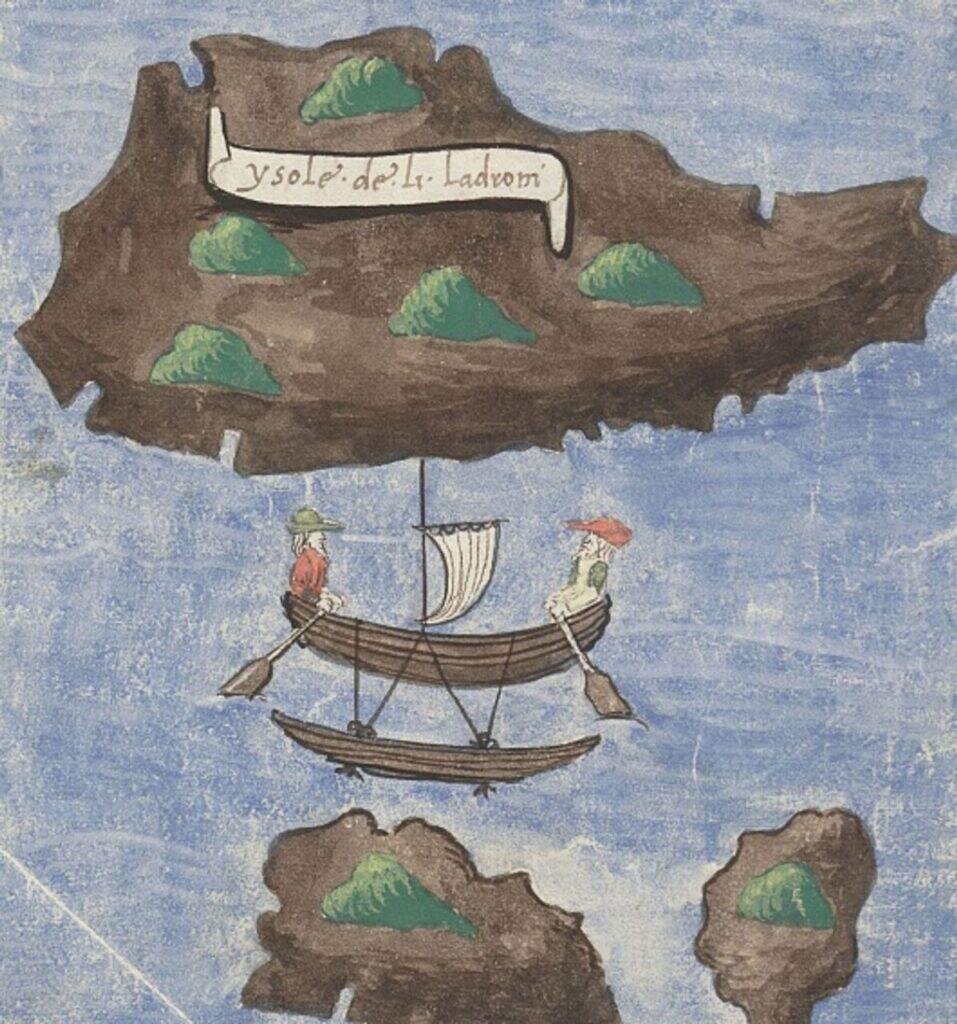 ysole · de · li · Ladroni